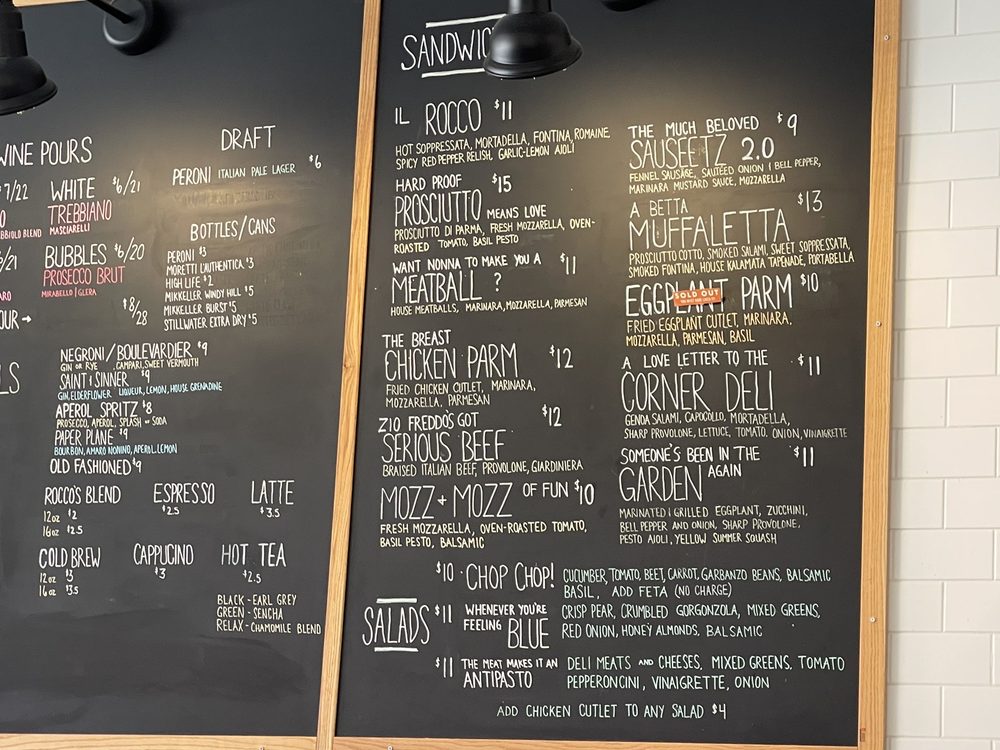 WINE POURS
7/22
BBIOLO BLEND
6/21
OUR →
WHITE $6/21
TREBBIANO
MASCIARELLI
BUBBLES $6/20
PROSECCO BRUT
MIRABELLO | GLERA
$8/28
DRAFT
PERONI ITALIAN PALE LAGER $6
BOTTLES/CANS
PERONI $3
MORETTI L'AUTHENTICA $3
HIGH LIFE $2
MIKKELLER WINDY HILL $5
MIKKELLER BURST $5
STILLWATER EXTRA DRY $5
LS
NEGRONI/BOULEVARDIER $9
GIN OR RYE CAMPARI, SWEET VERMOUTH
SAINT & SINNER $9
GIN, ELDERFLOWER LIQUEUR, LEMON, HOUSE GRENADINE
APEROL SPRITZ $8
PROSECCO, APEROL, SPLASH OF SODA
PAPER PLANE $9
BOURBON, AMARO NONINO, APEROL, LEMON
OLD FASHIONED $9
ROCCO'S BLEND
12oz $2
16oz $2.5
ESPRESSO
$2.5
LATTE
$3.5
COLD BREW
12oz $3
16oz $3.5
CAPPUCINO
$3
HOT TEA
$2.5
BLACK - EARL GREY
GREEN - SENCHA
RELAX - CHAMOMILE BLEND
SANDWIC
IL ROCCO $11
HOT SOPPRESSATA, MORTADELLA, FONTINA, ROMAINE
SPICY RED PEPPER RELISH, GARLIC-LEMON AIOLI
HARD PROOF $15
PROSCIUTTO MEANS LOVE
PROSCIUTTO DI PARMA, FRESH MOZZARELLA, OVEN-
ROASTED TOMATO, BASIL PESTO
WANT NONNA TO MAKE YOU A $11
MEATBALL ?
HOUSE MEATBALLS, MARINARA, MOZZARELLA, PARMESAN
THE BREAST
CHICKEN PARM $12
FRIED CHICKEN CUTLET, MARINARA,
MOZZARELLA, PARMESAN
ZIO FREDDO'S GOT $12
SERIOUS BEEF
BRAISED ITALIAN BEEF, PROVOLONE, GIARDINIERA
MOZZ + MOZZ OF FUN $10
FRESH MOZZARELLA, OVEN-ROASTED TOMATO,
BASIL PESTO, BALSAMIC
THE MUCH BELOVED $9
SAUSEETZ 2.0
FENNEL SAUSAGE, SAUTEED ONION & BELL PEPPER,
MARINARA MUSTARD SAUCE, MOZZARELLA
A BETTA $13
MUFFALETTA
PROSCIUTTO COTTO, SMOKED SALAMI, SWEET SOPPRESSATA,
SMOKED FONTINA, HOUSE KALAMATA TAPENADE, PORTABELLA
EGGPLANT PARM $10
SOLD OUT
FRIED EGGPLANT CUTLET, MARINARA,
MOZZARELLA, PARMESAN, BASIL
A LOVE LETTER TO THE $11
CORNER DELI
GENOA SALAMI, CAPOCOLLO, MORTADELLA,
SHARP PROVOLONE, LETTUCE, TOMATO, ONION, VINAIGRETTE
SOMEONE'S BEEN IN THE $11
GARDEN AGAIN
MARINATED & GRILLED EGGPLANT, ZUCCHINI,
BELL PEPPER AND ONION, SHARP PROVOLONE,
PESTO AIOLI, YELLOW SUMMER SQUASH
SALADS
$10 CHOP CHOP! CUCUMBER, TOMATO, BEET, CARROT, GARBANZO BEANS, BALSAMIC
BASIL, ADD FETA (NO CHARGE)
$11 WHENEVER YOU'RE FEELING BLUE CRISP PEAR, CRUMBLED GORGONZOLA, MIXED GREENS,
RED ONION, HONEY ALMONDS, BALSAMIC
$11 THE MEAT MAKES IT AN ANTIPASTO DELI MEATS AND CHEESES, MIXED GREENS, TOMATO
PEPPERONCINI, VINAIGRETTE, ONION
ADD CHICKEN CUTLET TO ANY SALAD $4